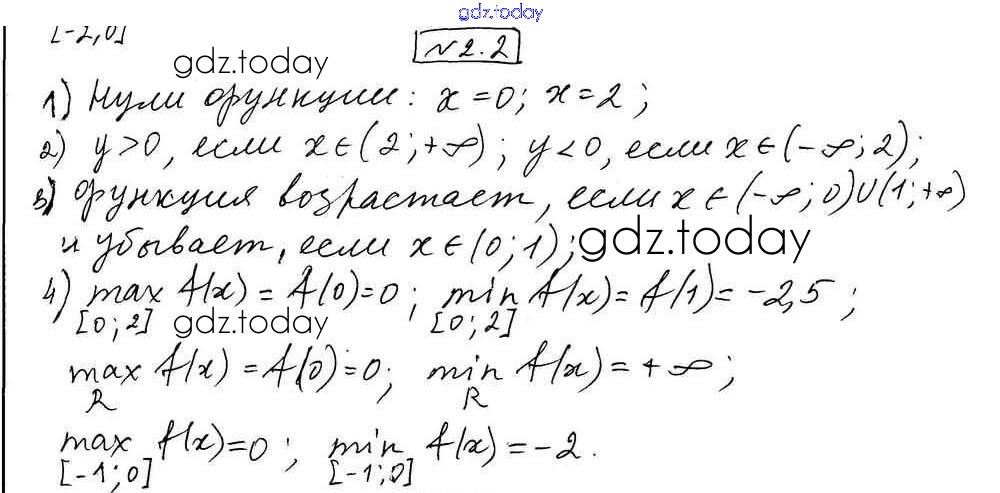 gdz.today
[-2,0]
№2.2
gdz.today
1) Нули функции: x=0; x=2;
2) y>0, если x∈(2;+∞); y<0, если x∈(-∞;2);
3) функция возрастает, если x∈(-∞;0)∪(1;+∞)
и убывает, если x∈(0;1);
gdz.today
4) max f(x) = f(0)=0; min f(x)=f(1)=-2,5;
[0;2] [0;2]
gdz.today
max f(x)=f(0)=0; min f(x)=+∞;
R R
max f(x)=0; min f(x)=-2.
[-1;0] [-1;0]